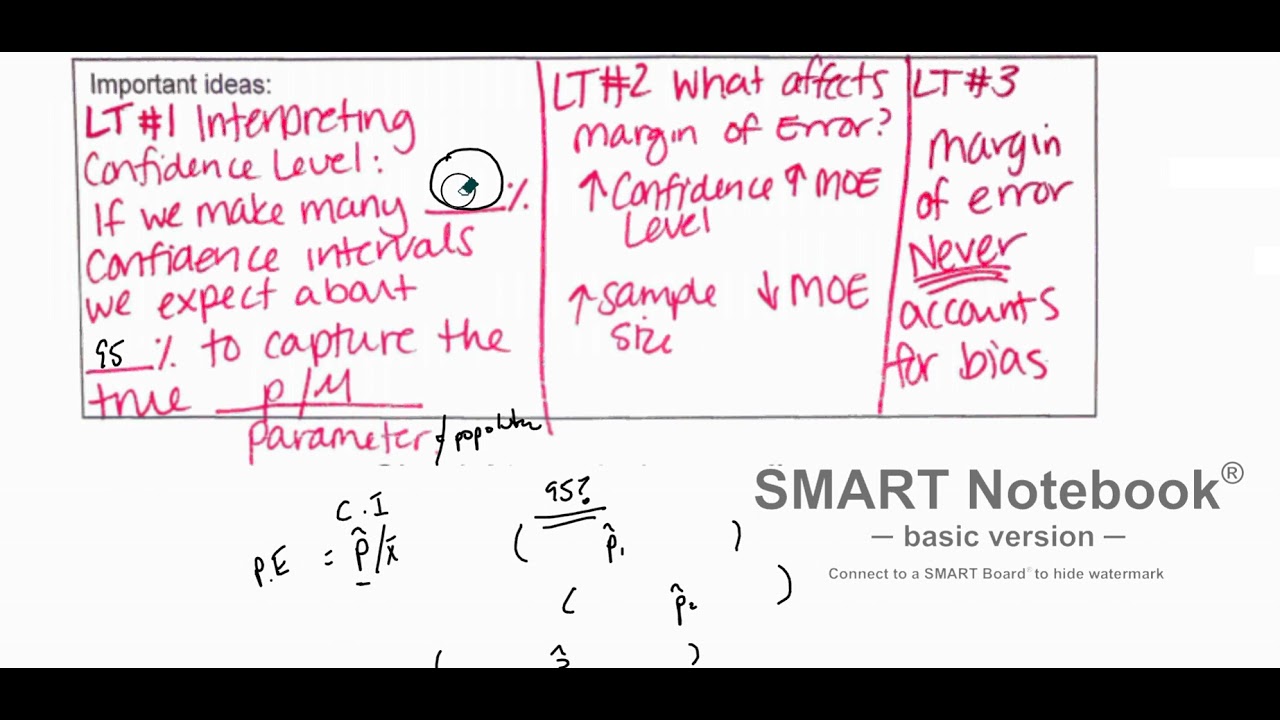 Important ideas:
LT #1 Interpreting
Confidence Level:
If we make many ____%
Confidence intervals
we expect about
95 % to capture the
true p/M
parameter
LT#2 What affects
margin of Error?
↑ Confidence ↑ MOE
Level
↑ sample ↓ MOE
size
LT#3
margin
of error
Never
accounts
for bias
C.I
P.E = p̂/x̄
95?
( p̂1 )
( p̂2 )
( )
SMART Notebook®
— basic version —
Connect to a SMART Board® to hide watermark